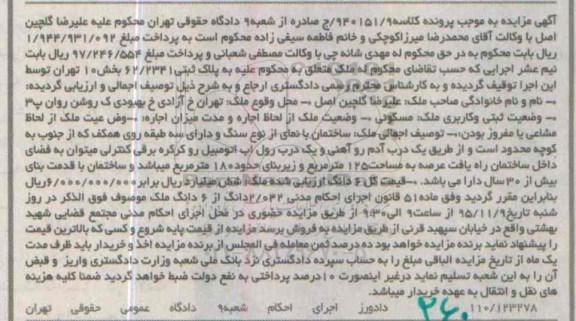 آگهی مزایده به موجب پرونده کلاسه ۹۴۰۱۵۱/۹ج صادره از شعبه۹ دادگاه حقوقی تهران محکوم علیه علیرضا گلچین
اصل با وکالت آقای محمدرضا میرزاکوچکی و خانم فاطمه سیفی زاده محکوم است به پرداخت مبلغ ۱/۹۴۴/۹۳۱/۰۹۲
ریال بابت محکوم به در حق محکوم له مهدی شانه چی با وکالت مصطفی شعبانی و پرداخت مبلغ ۹۷/۲۴۶/۵۵۴ ریال بابت
نیم عشر اجرایی که حسب تقاضای محکوم له ملک متعلق به محکوم علیه به پلاک ثبتی ۶۲/۲۳۴۱ بخش۱۰ تهران توسط
این اجرا توقیف گردیده و به کارشناس محترم رسمی دادگستری ارجاع و به شرح ذیل توصیف اجمالی و ارزیابی گردیده:
-- نام و نام خانوادگی صاحب ملک: علیرضا گلچین اصل -- محل وقوع ملک: تهران خ آزادی خ بهبودی ک روشن روان پ۳
-- وضعیت ثبتی وکاربری ملک: مسکونی -- وضعیت ملک از لحاظ اجاره و مدت میزان اجاره: --وض عیت ملک از لحاظ
مشاعی یا مفروز بودن: -- توصیف اجمالی ملک: ساختمان با نمای از نوع سنگ و دارای سه طبقه روی همکف که از جنوب به
کوچه محدود است و از طریق یک درب آدم رو آهنی و یک درب رول آپ اتومبیل رو کرکره برقی کنترلی میتوان به فضای
داخل ساختمان راه یافت عرصه به مساحت۱۲۵ مترمربع و زیربنای حدود۱۸۰ مترمربع میباشد و ساختمان با قدمت بنای
بیش از ۳۰ سال دارا می باشد. --قیمت کل ۶ دانگ ارزیابی شده ملک: شش میلیارد ریال برابر ۶/۰۰۰/۰۰۰/۰۰۰ریال
بنابراین مقرر گردید وفق ماده۵۱ قانون اجرای احکام مدنی ۲/۰۴۲دانگ از ۶ دانگ ملک موصوف فوق الذکر در روز
شنبه تاریخ۹۵/۱۱/۹ از ساعت۹ الی۹:۳۰ از طریق مزایده حضوری در محل اجرای احکام مدنی مجتمع قضایی شهید
بهشتی واقع در خیابان سپهبد قرنی از طریق مزایده به فروش برسد مزایده از قیمت پایه شروع و کسی که بالاترین قیمت
را پیشنهاد نماید برنده مزایده خواهد بود ده درصد ثمن معامله فی المجلس از برنده مزایده اخذ و خریدار باید ظرف مدت
یک ماه از تاریخ مزایده الباقی مبلغ را به حساب سپرده دادگستری نزد بانک ملی شعبه وزارت دادگستری واریز و قبض
آن را به این شعبه تسلیم نماید درغیر اینصورت ۱۰درصد پرداختی به نفع دولت ضبط خواهد گردید ضمنا کلیه هزینه
های نقل و انتقال به عهده خریدار میباشد.
۱۱۰/۱۲۳۲۷۸ دادورز اجرای احکام شعبه۹ دادگاه عمومی حقوقی تهران
۲۶۰